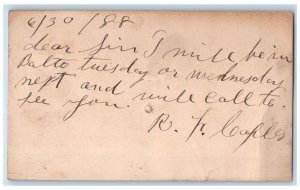 6/30/88
dear Sir I will be in
Balto tuesday or wednesday
next and will call to
see you.
R. F.